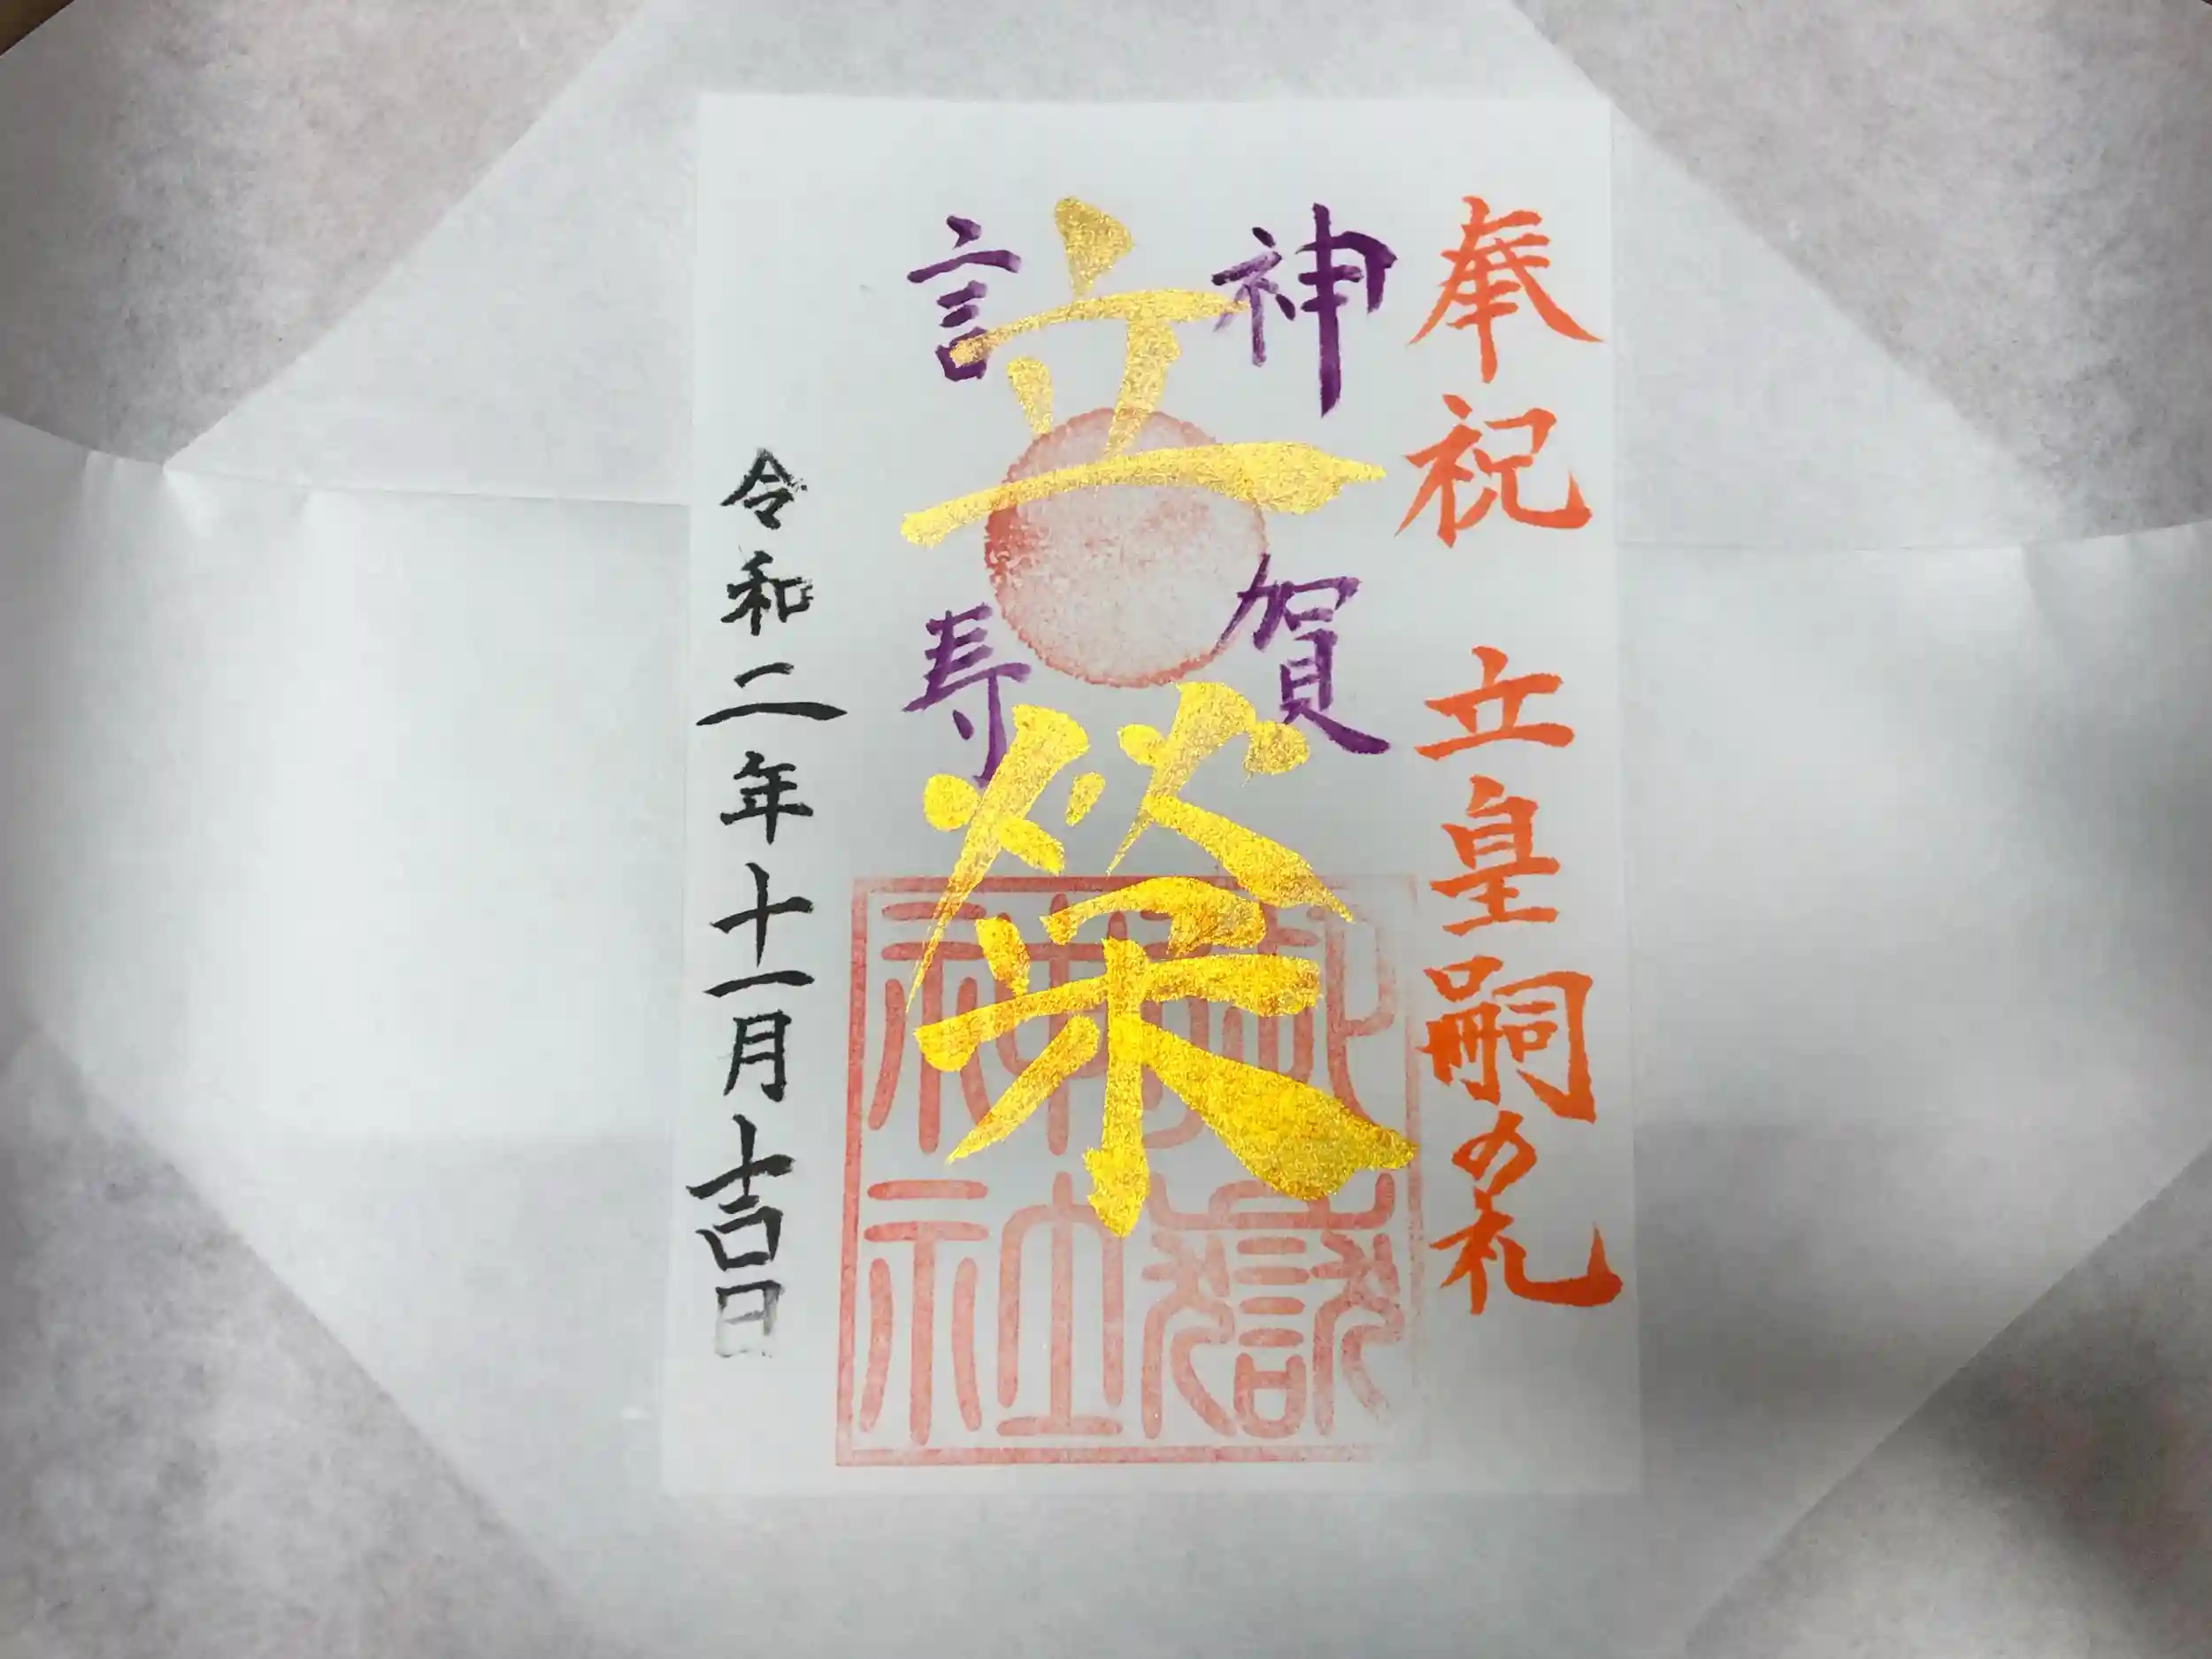 奉祝 立皇嗣の礼
神賀
立榮
言寿
令和二年十一月吉日
御嶽神社